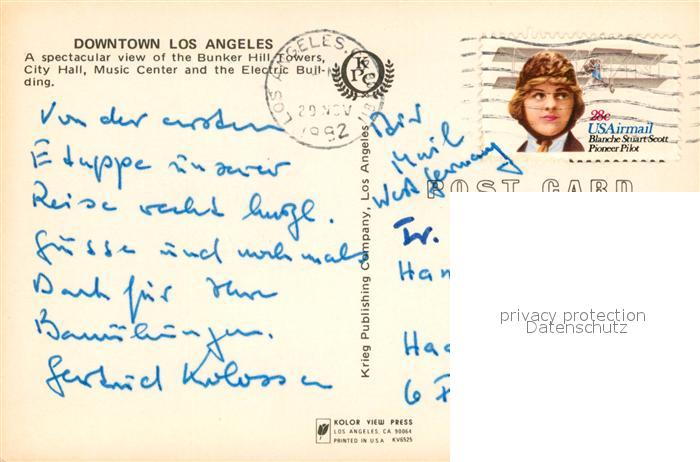 DOWNTOWN LOS ANGELES
A spectacular view of the Bunker Hill Towers,
City Hall, Music Center and the Electric Buil-
ding.
LOS ANGELES, C
29 NOV
1982
K P C
28c
USAirmail
Blanche Stuart Scott
Pioneer Pilot
POST CARD
Von der ersten
Etappe unserer
Reise recht herzl.
Grüsse und nochmals
Dank für Ihre
Bemühungen.
Gertrud Kolossa
Air
Mail
West Germany
Fr.
Han
Haa
6 F
Krieg Publishing Company, Los Angeles
privacy protection
Datenschutz
KOLOR VIEW PRESS
LOS ANGELES, CA 90064
PRINTED IN U.S.A. KV6525